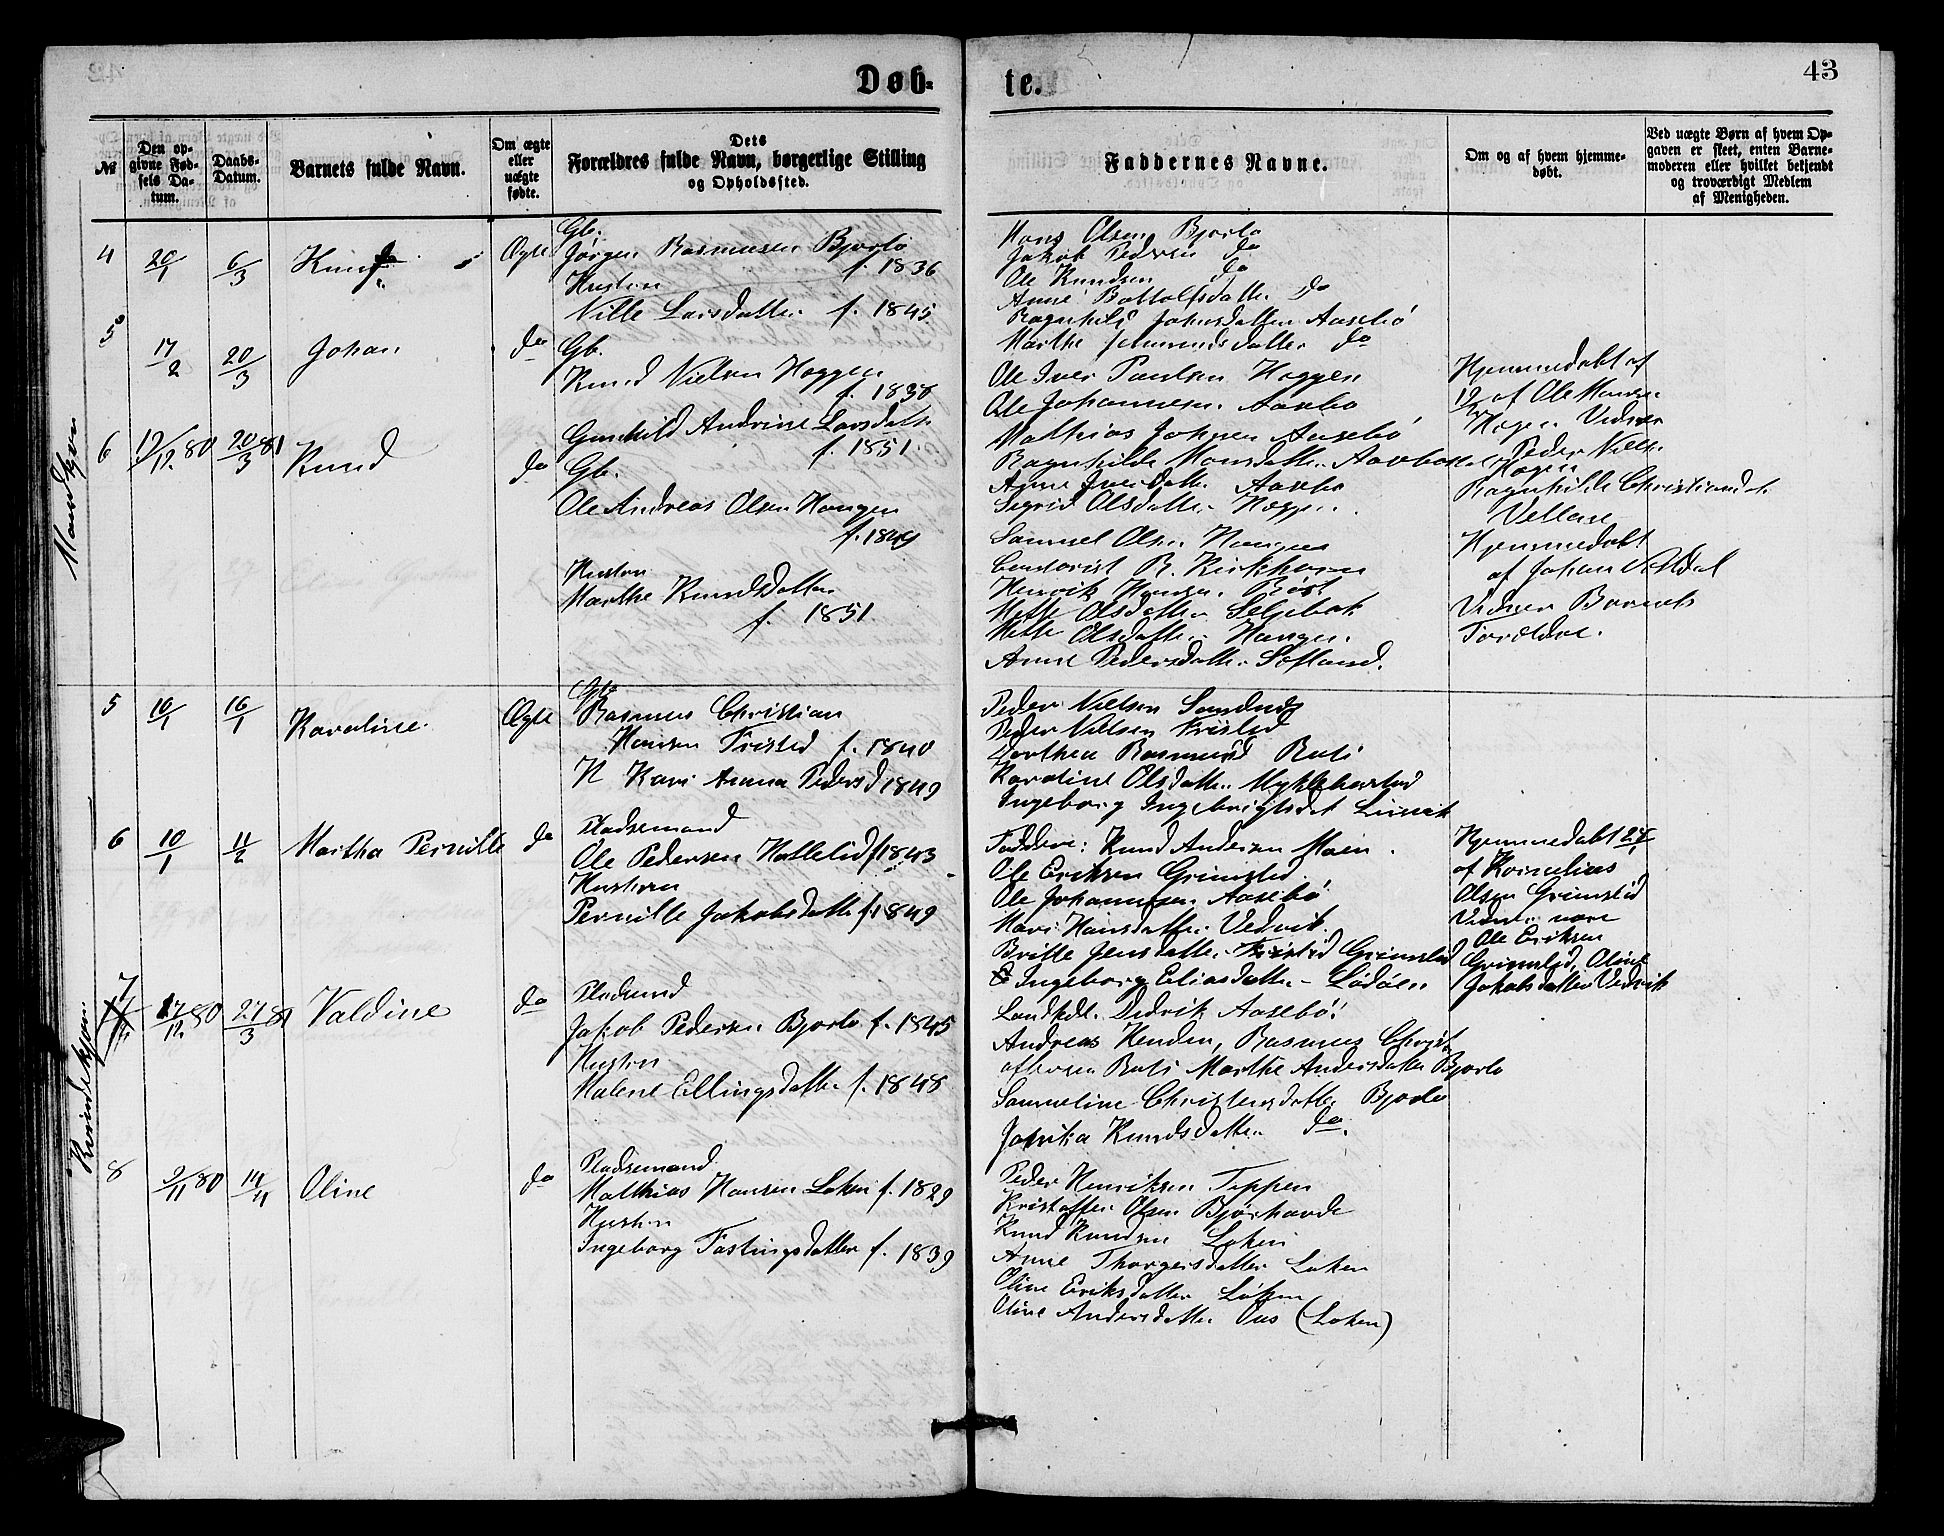 Døb-
te.
43
№
Den op-
givne Fød-
sels Da-
tum.
Daabs-
Datum.
Barnets fulde Navn.
Om ægte
eller
uægte
fødte.
Dets
Forældres fulde Navn, borgerlige Stilling
og Opholdssted.
Faddernes Navne.
Om og af hvem hjemme-
døbt.
Ved uægte Børn af hvem Op-
gaven er skeet, enten Barne-
moderen eller hvilket bekjendt
og troværdigt Medlem
af Menigheden.
Mandkjøn
4
20/1
6/3
Ægte
Gb.
Jørgen Rasmusen Bjørlo
f. 1836
Hustru
Larsdatter f. 1845
Hans Olsen Bjorlo
Jakob Pedersen do
Ole Knudsen do
Anne Bottolfsdatter do
Ragnhild Johnsdatter Aasebø
Marthe do
5
17/2
20/3
Johan
do
Gb.
Knud Nielsen Hoggen
f. 1838
Gunhild Andrine Larsdatter
f. 1851.
Ole Iver Paulsen Hoggen
Ole Johannesen Aasebø
Mathias Johnsen Aasebø
Ragnhilde Monsdatter
Anne Iversdatter Aasebø
Sigrid Olsdatter Hoggen.
Hjemmedøbt af
af Ole Hansen
Vidner
Peder Nielsen
Ragnhilde
6
12/12 80
20/3 81
Knud
do
Gb.
Ole Andreas Olsen Haugen
f. 1849
Hustru
Marthe Knudsdatter
f. 1851.
Samuel Olsen Haugen
R. Kirkhorn
Henrik Hansen
Mette Olsdatter
Mette Olsdatter Haugen.
Anne Pedersdatter
Hjemmedøbt
af Johan
Vidner Barnets
Forældre.
Kvindekjøn
5
16/1
16/1
Karoline.
Ægte
Gb.
Rasmus Christian
Hansen Tristed f. 1840
H Kari Anna Pedersd 1849
Peder Nielsen
Peder Nielsen Tristed
Dorthea Rasmusd
Karoline Olsdatter Myklebustad
Ingeborg Ingebrigtsdt
6
10/1
11/2
Martha Pernille
do
Pladsemand
Ole Pedersen Hallelid f 1843
Hustruen
Pernille Jakobsdatter f 1849
Faddere: Knud Andersen Moen.
Ole Eriksen Grimslid
Ole Johannesen Aasebø
Mari Hansdatter Vedvik.
Britte Jensdatter Tristed Grimslid
Ingeborg Eliasdatter
Hjemmedøbt 24/1
af Kornelius
Olsen Grimslid
Vidner vare
Ole Eriksen
Grimslid, Oline
Jakobsdatter Vedvik
7
17/12 80
27/3 81
Valdine
do
Pladsmd
Jakob Pedersen Bjorlo f. 1845
Hustru
Malene Ellingsdatter f. 1848
Didrik Aasebø.
Andreas Henden, Rasmus Christ
offersen Marthe Andersdatter Bjorlo
Samueline Christensdatter Bjorlo
Knudsdatter do.
8
9/11 80
Oline
do
Pladsemand
Matthias Hansen Loken f. 1829
Hustru
Ingeborg Fastingsdatter f. 1839
Peder Henriksen Teppen
Kristoffer Olsen
Knud Knudsen Loken
Anne Thorgersdatter Loken
Oline Eriksdatter Løken
Oline Andersdatter Ous (Loken)